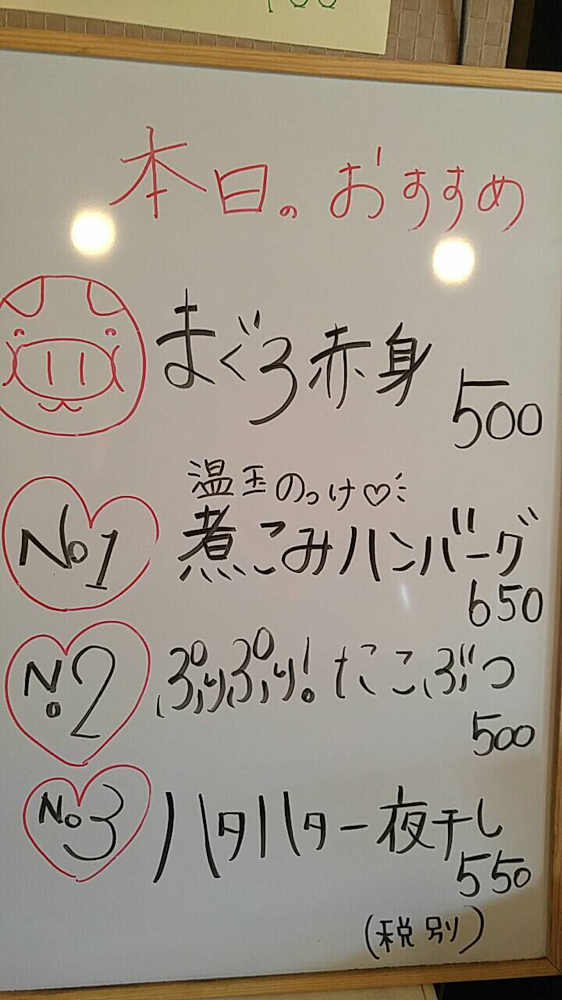 本日のおすすめ
まぐろ赤身
500
温玉のっけ♡
No1 煮こみハンバーグ
650
No2 ぷりぷり!たこぶつ
500
No3 ハタハタ一夜干し
550
(税別)